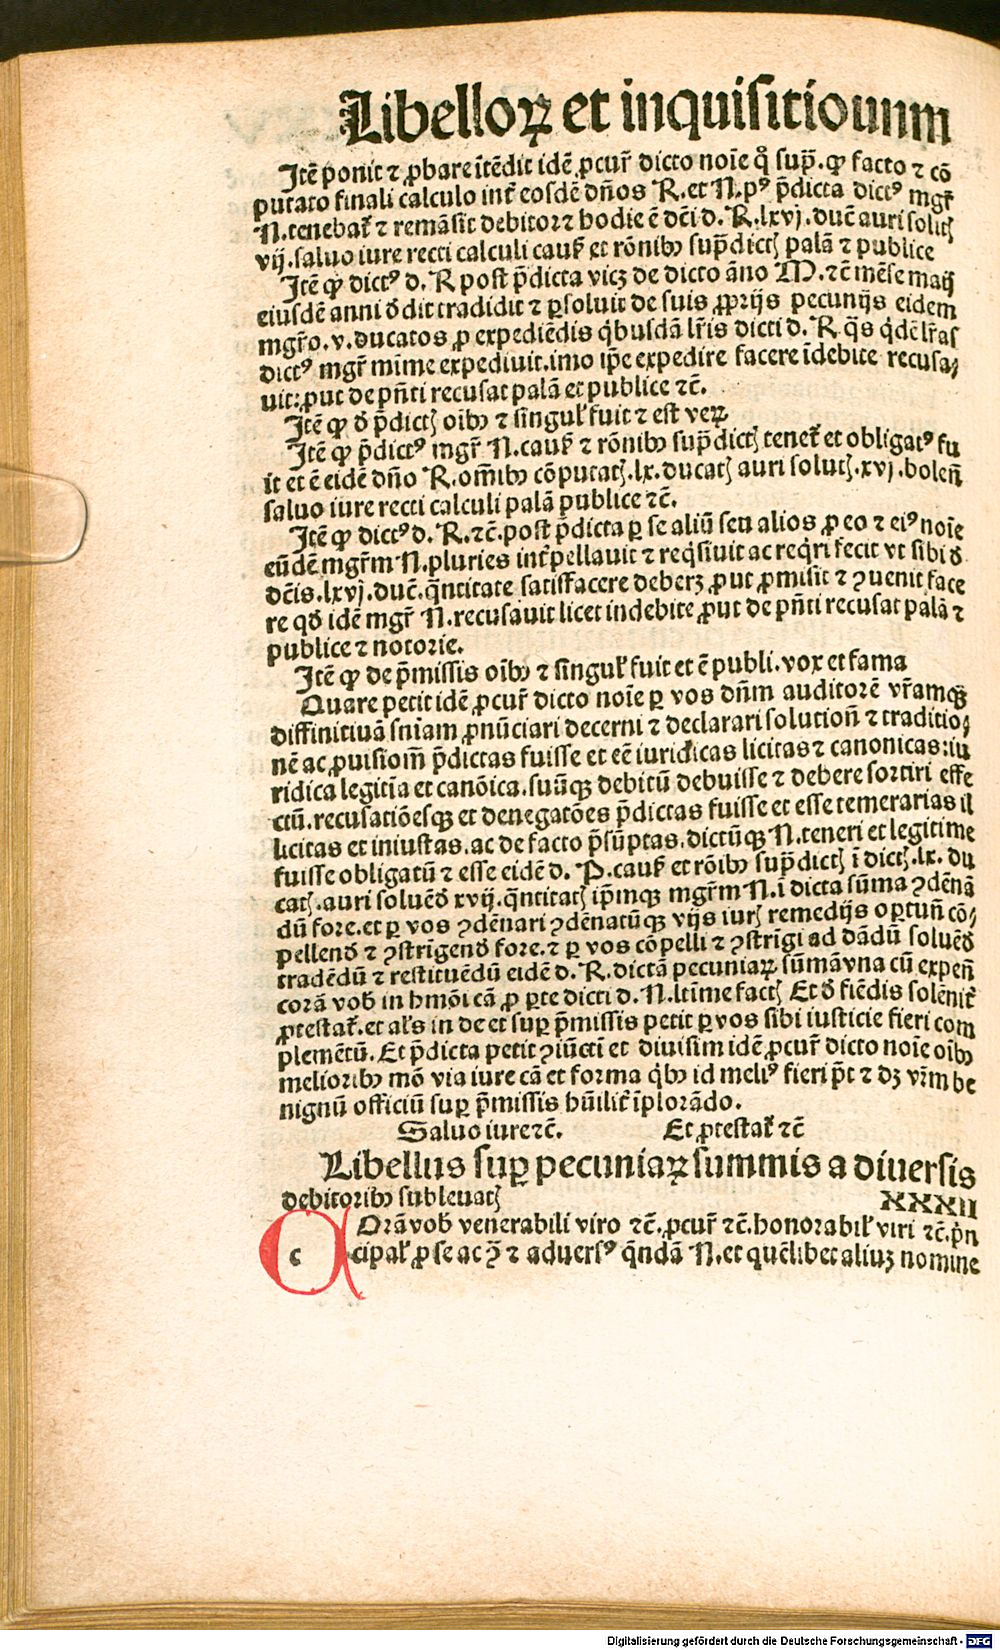 Libelloꝝ et inquisitiounm
Itē ponit ⁊ ꝓbare ītēdit idē ꝓcur̄ dicto noīe qͦ sup̄. ꝙ facto ⁊ cō
putato finali calculo int̄ eosdē dn̄os R. et N. pꝰ p̄dicta dictꝰ mgr̄
N. tenebat̄ ⁊ remāsit debitor⁊ hodie ē dc̄i d. R. lxvj. duc̄ auri solutꝭ
vij. saluo iure recti calculi cauẜ et rōnibꝫ sup̄dictꝭ palā ⁊ publice
Itē ꝙ dictꝰ d. R post p̄dicta vicꝫ de dicto āno M. ⁊c̄ mēse maij
eiusdē anni ꝺ dit tradidit ⁊ ꝑsoluit de suis ꝓprijs pecunijs eidem
mgr̄o. v. ducatos ꝓ expediēdis qͥbusdā lr̄is dicti d. R q̄s qͥdē lr̄as
dictꝰ mgr̄ mīme expediuit. imo ip̄e expedire facere īdebite recusa⸗
uit: ꝓut de pn̄ti recusat palā et publice ⁊c̄.
Itē ꝙ ꝺ p̄dictꝭ oībꝫ ⁊ singuł fuit ⁊ est veꝝ
Itē ꝙ p̄dictꝰ mgr̄ N. cauẜ ⁊ rōnibꝫ sup̄dictꝭ tenet̄ et obligatꝰ fu
it et ē eidē dn̄o R. om̄ibꝫ cōputatꝭ. lx. ducatꝭ auri solutꝭ. xvj. bolen̄
saluo iure recti calculi palā publice ⁊c̄.
Itē ꝙ dictꝰ d. R. ⁊c̄. post p̄dicta ꝑ se aliū seu alios ꝓ eo ⁊ eiꝰ noīe
eūdē mgr̄m N. pluries int̄pellauit ⁊ reqͥsiuit ac reqͥri fecit vt sibi ꝺ
dc̄is. lxvj. duc̄. q̄ntitate satisfacere deberꝫ ꝓut ꝓmisit ⁊ ꝯuenit face
re qꝺ idē mgr̄ N. recusauit licet indebite ꝓut de pn̄ti recusat palā ⁊
publice ⁊ notorie.
Itē ꝙ de p̄missis oībꝫ ⁊ singuł fuit et ē publi. vox et fama
Quare petit idē ꝓcur̄ dicto noīe ꝑ vos dn̄m auditorē vr̄amqꝫ
diffinitiuā sniam ꝓnūciari decerni ⁊ declarari solution̄ ⁊ traditio⸗
nē ac ꝓuisiom̄ p̄dictas fuisse et eē iuridicas licitas ⁊ canonicas: iu
ridica legitīa et canōica. suūqꝫ debitū debuisse ⁊ debere sortiri effe
ctū. recusatiōesqꝫ et denegatōes p̄dictas fuisse et esse temerarias il
licitas et iniustas. ac de facto p̄sūptas. dictūqꝫ N. teneri et legitime
fuisse obligatū ⁊ esse eidē d. P. cauẜ et rōibꝫ sup̄dictꝭ ī dictꝭ. lx. du
catꝭ. auri soluēꝺ xvij. q̄ntitatꝭ ip̄mqꝫ mgr̄m N. ī dicta sūma ꝯdēnā
dū fore. et ꝑ vos ꝯdēnari ꝯdēnatūqꝫ vijs iurꝭ remedijs oꝑtun̄ cō⸗
pellenꝺ ⁊ ꝯstrīgenꝺ fore. ⁊ ꝑ vos cōpelli ⁊ ꝯstrīgi ad dādū soluēꝺ
tradēdū ⁊ restituēdū eidē d. R. dictā pecuniaꝝ sūmā vna cū expen̄
corā voꝺ in hmōi cā ꝓ ꝑte dicti d. N. ltīme factꝭ Et ꝺ fiēdis solēnit̄
ꝓtestat̄. et aƚs in de et suꝑ p̄missis petit ꝑ vos sibi iusticie fieri com
plemētū. Et p̄dicta petit ꝯiūctī et diuisim idē ꝓcur̄ dicto noīe oībꝫ
melioribꝫ mō via iure cā et forma qͥbꝫ id meliꝰ fieri p̄t ⁊ dꝫ vr̄m be
nignū officiū suꝑ p̄missis hūilit̄ īplorādo.
Saluo iure ⁊c̄. Et ꝓtestat̄ ⁊c̄
Libellus suꝑ pecuniaꝝ summis a diuersis
debitoribꝫ subleuatꝭ XXXII
c Orā voꝺ venerabili viro ⁊c̄. ꝓcur̄ ⁊c̄. honorabił viri ⁊c̄. pͥn
cipał ꝓ se ac ꝯ̄ ⁊ aduersꝰ q̄ndā N. et quēlibet aliuꝫ nomine
Digitalisierung gefördert durch die Deutsche Forschungsgemeinschaft - DFG